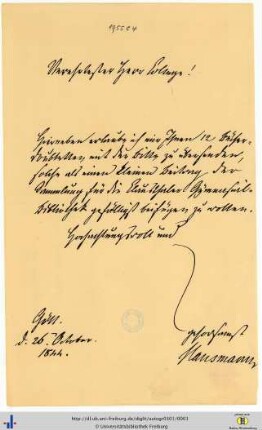 Verehrtester Herr College!
Hierneben erlaube ich mir Ihnen 12 Bücher-
Doubletten mit der Bitte zu übersenden,
solche als einen kleinen Beitrag der
Sammlung für die
Bibliothek gefälligst beifügen zu wollen.
Hochachtungsvoll und
gehorsamst
Hausmann
Gött.
d. 26. October
1844.
http://dl.ub.uni-freiburg.de/diglit/autogr0101/0001
© Universitätsbibliothek Freiburg